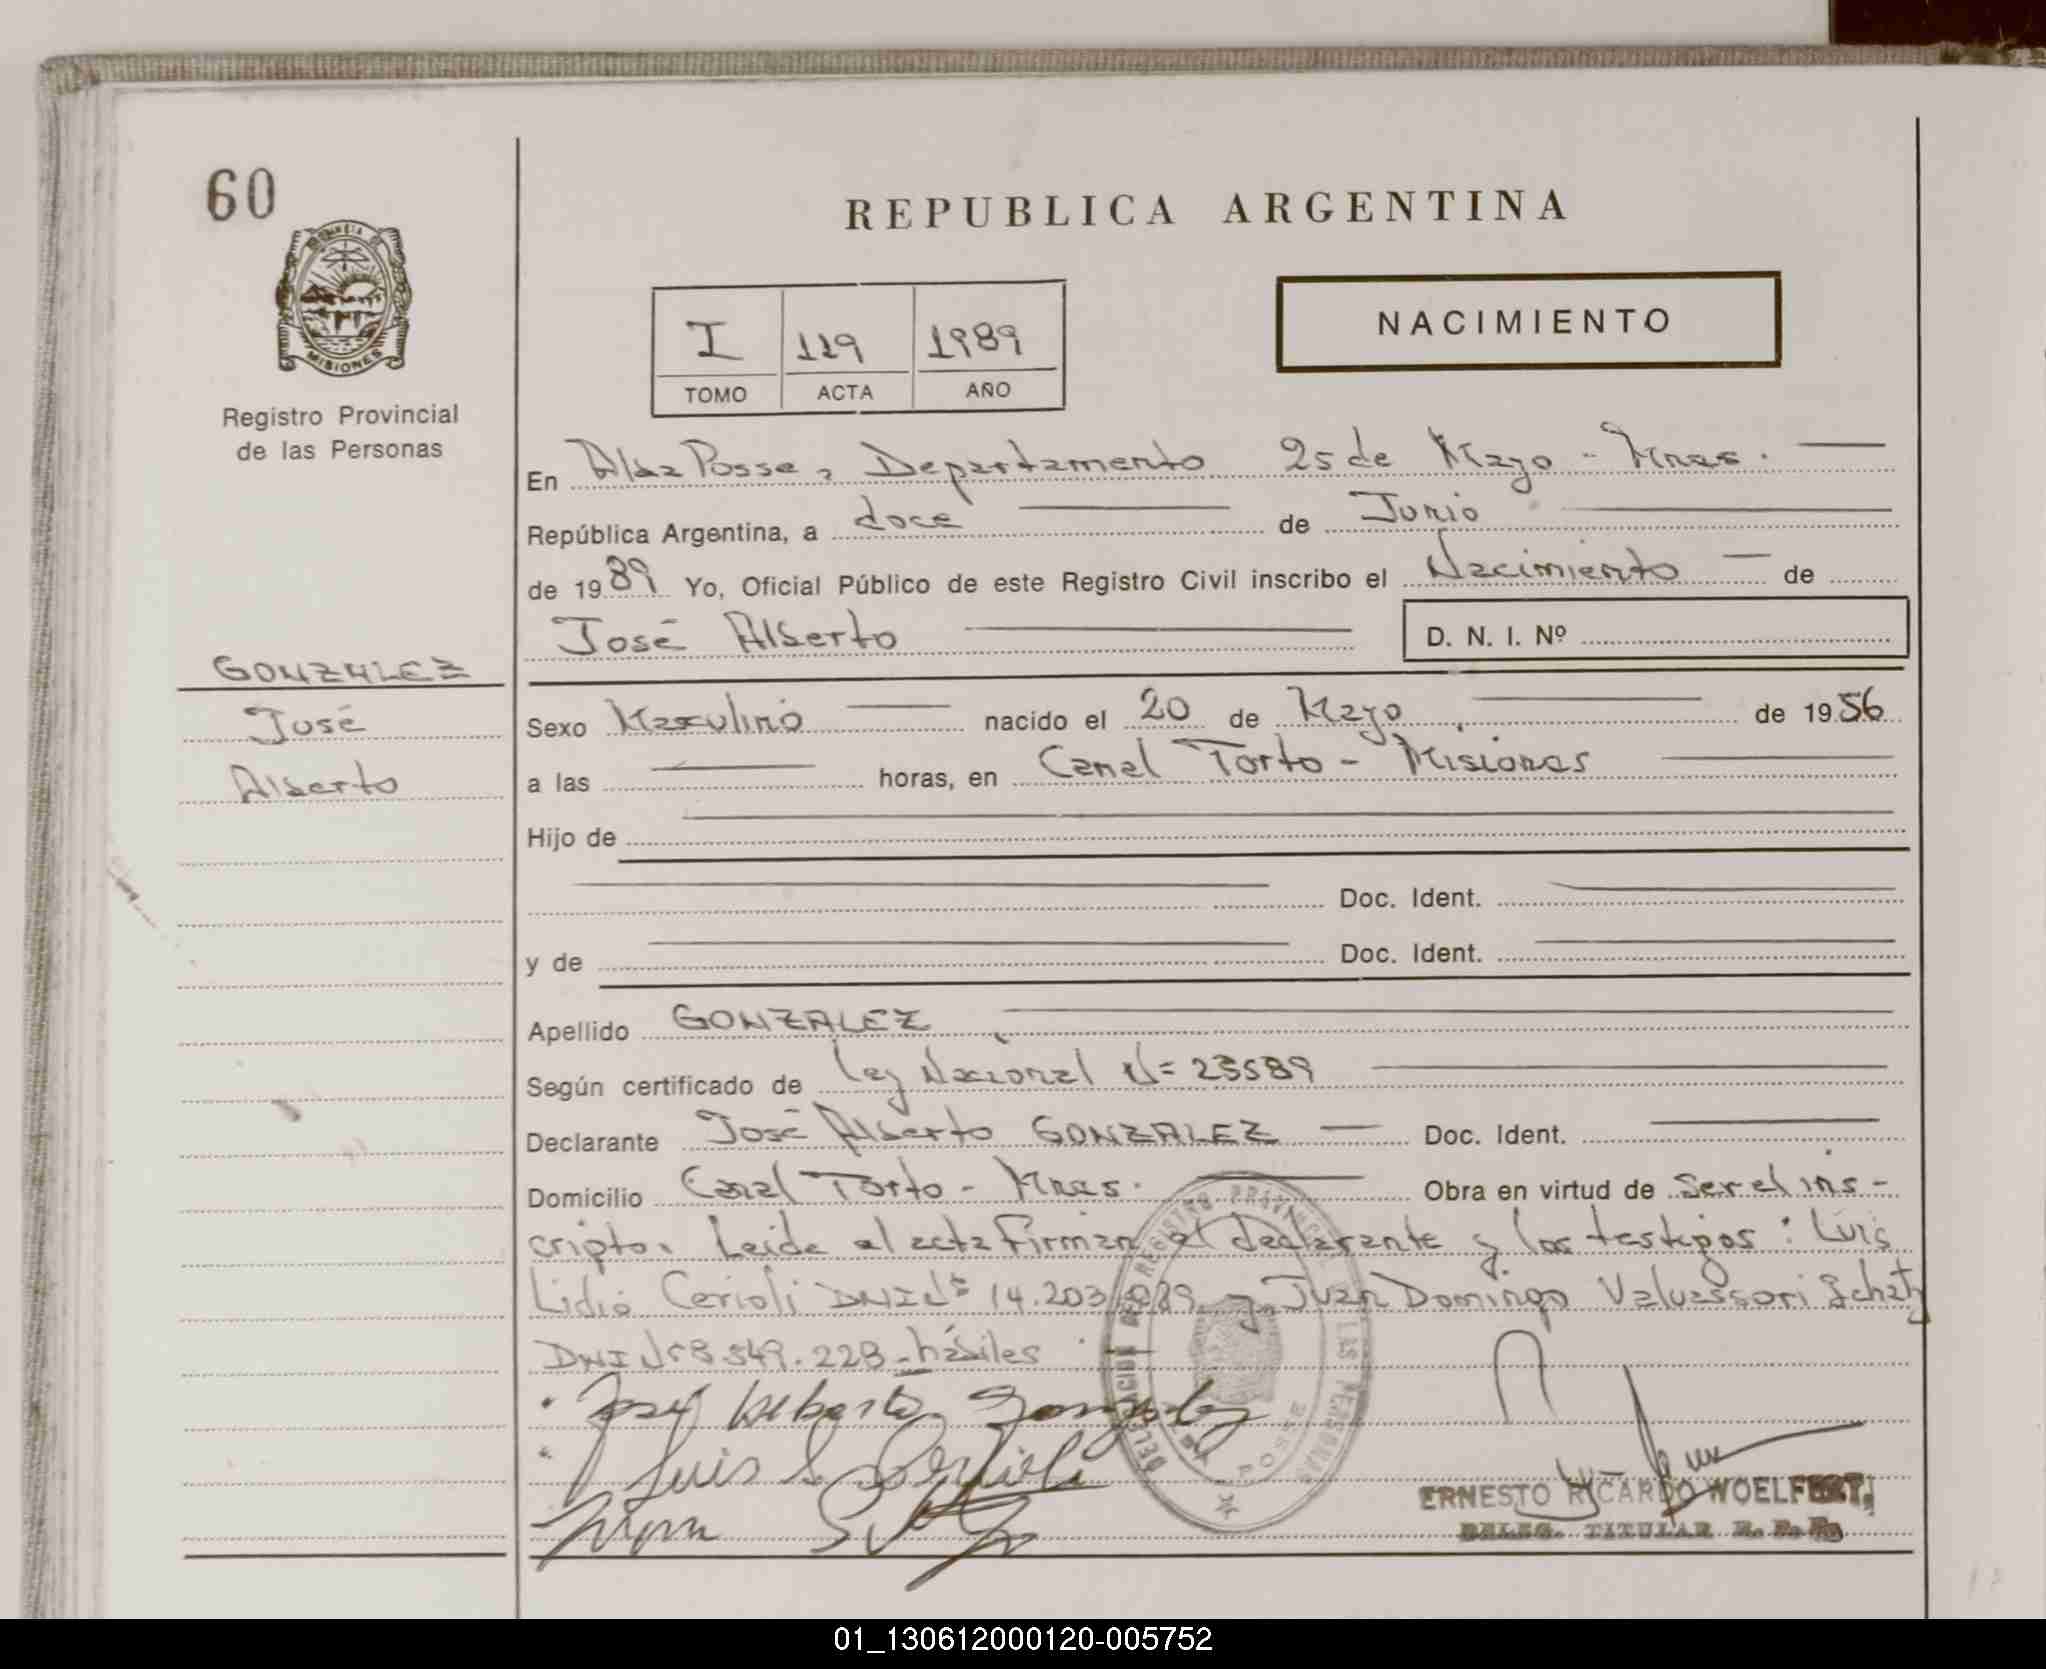 60
REPUBLICA ARGENTINA
PROVINCIA DE
MISIONES
Registro Provincial
de las Personas
I 119 1989
TOMO ACTA AÑO
NACIMIENTO
En Alba Posse, Departamento 25 de Mayo - Mnes.
República Argentina, a doce de Junio
de 1989 Yo, Oficial Público de este Registro Civil inscribo el Nacimiento de
José Alberto D. N. I. Nº
GONZALEZ
José
Alberto
Sexo Masculino nacido el 20 de Mayo de 1956
a las horas, en Canal Torto - Misiones
Hijo de
Doc. Ident.
y de Doc. Ident.
Apellido GONZALEZ
Según certificado de Ley Nacional Nº 23589
Declarante José Alberto GONZALEZ Doc. Ident.
Domicilio Canal Torto - Mnes. Obra en virtud de ser el ins-
cripto. Leída el acta firman el declarante y los testigos: Luis
Lidio Cerioli DNI Nº 14.203.089 y Juan Domingo Valvassori Schatz
DNI Nº 8.549.228 - hábiles
José Alberto Gonzalez
Luis L Cerioli
DELEGACION DEL REGISTRO PROVINCIAL DE LAS PERSONAS
POSSE
ERNESTO RICARDO WOELFERT
DELEG. TITULAR R. P. P.
01_130612000120-005752